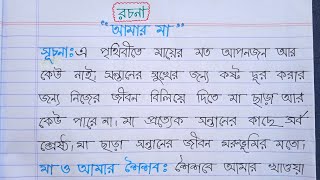 রচনা
"আমার মা"
সূচনা:- এ পৃথিবীতে মায়ের মত আপনজন আর
কেউ নাই। সন্তানের সুখের জন্য কষ্ট দূর করার
জন্য নিজের জীবন বিলিয়ে দিতে মা ছাড়া আর
কেউ পারে না। মা প্রত্যেক সন্তানের কাছে সর্ব
শ্রেষ্ঠ। মা ছাড়া সন্তানের জীবন মরুভূমির মতো।
মা ও আমার শৈশব: শৈশবে আমার খাওয়া